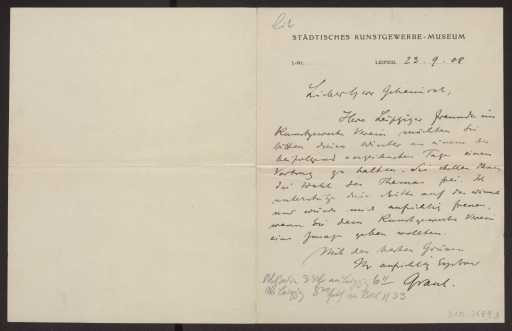 STÄDTISCHES KUNSTGEWERBE-MUSEUM
LEIPZIG, 23.9.08
Lieber Herr Geheimrat,
Ihre Leipziger Freunde im
Kunstgewerbe Verein möchten Sie
bitten diesen Winter an einem der
beifolgend Tage einen
Vortrag zu halten. Sie stellen Ihnen
die Wahl des Themas frei. Ich
unterstütze diese Bitte auf das wärmste
und würde mich aufrichtig freuen,
wenn Sie dem Kunstgewerbe Verein
eine Zusage geben wollten.
Mit den besten Grüssen
Ihr aufrichtig Ergebener
Graul.
an Leipzig
Leipzig